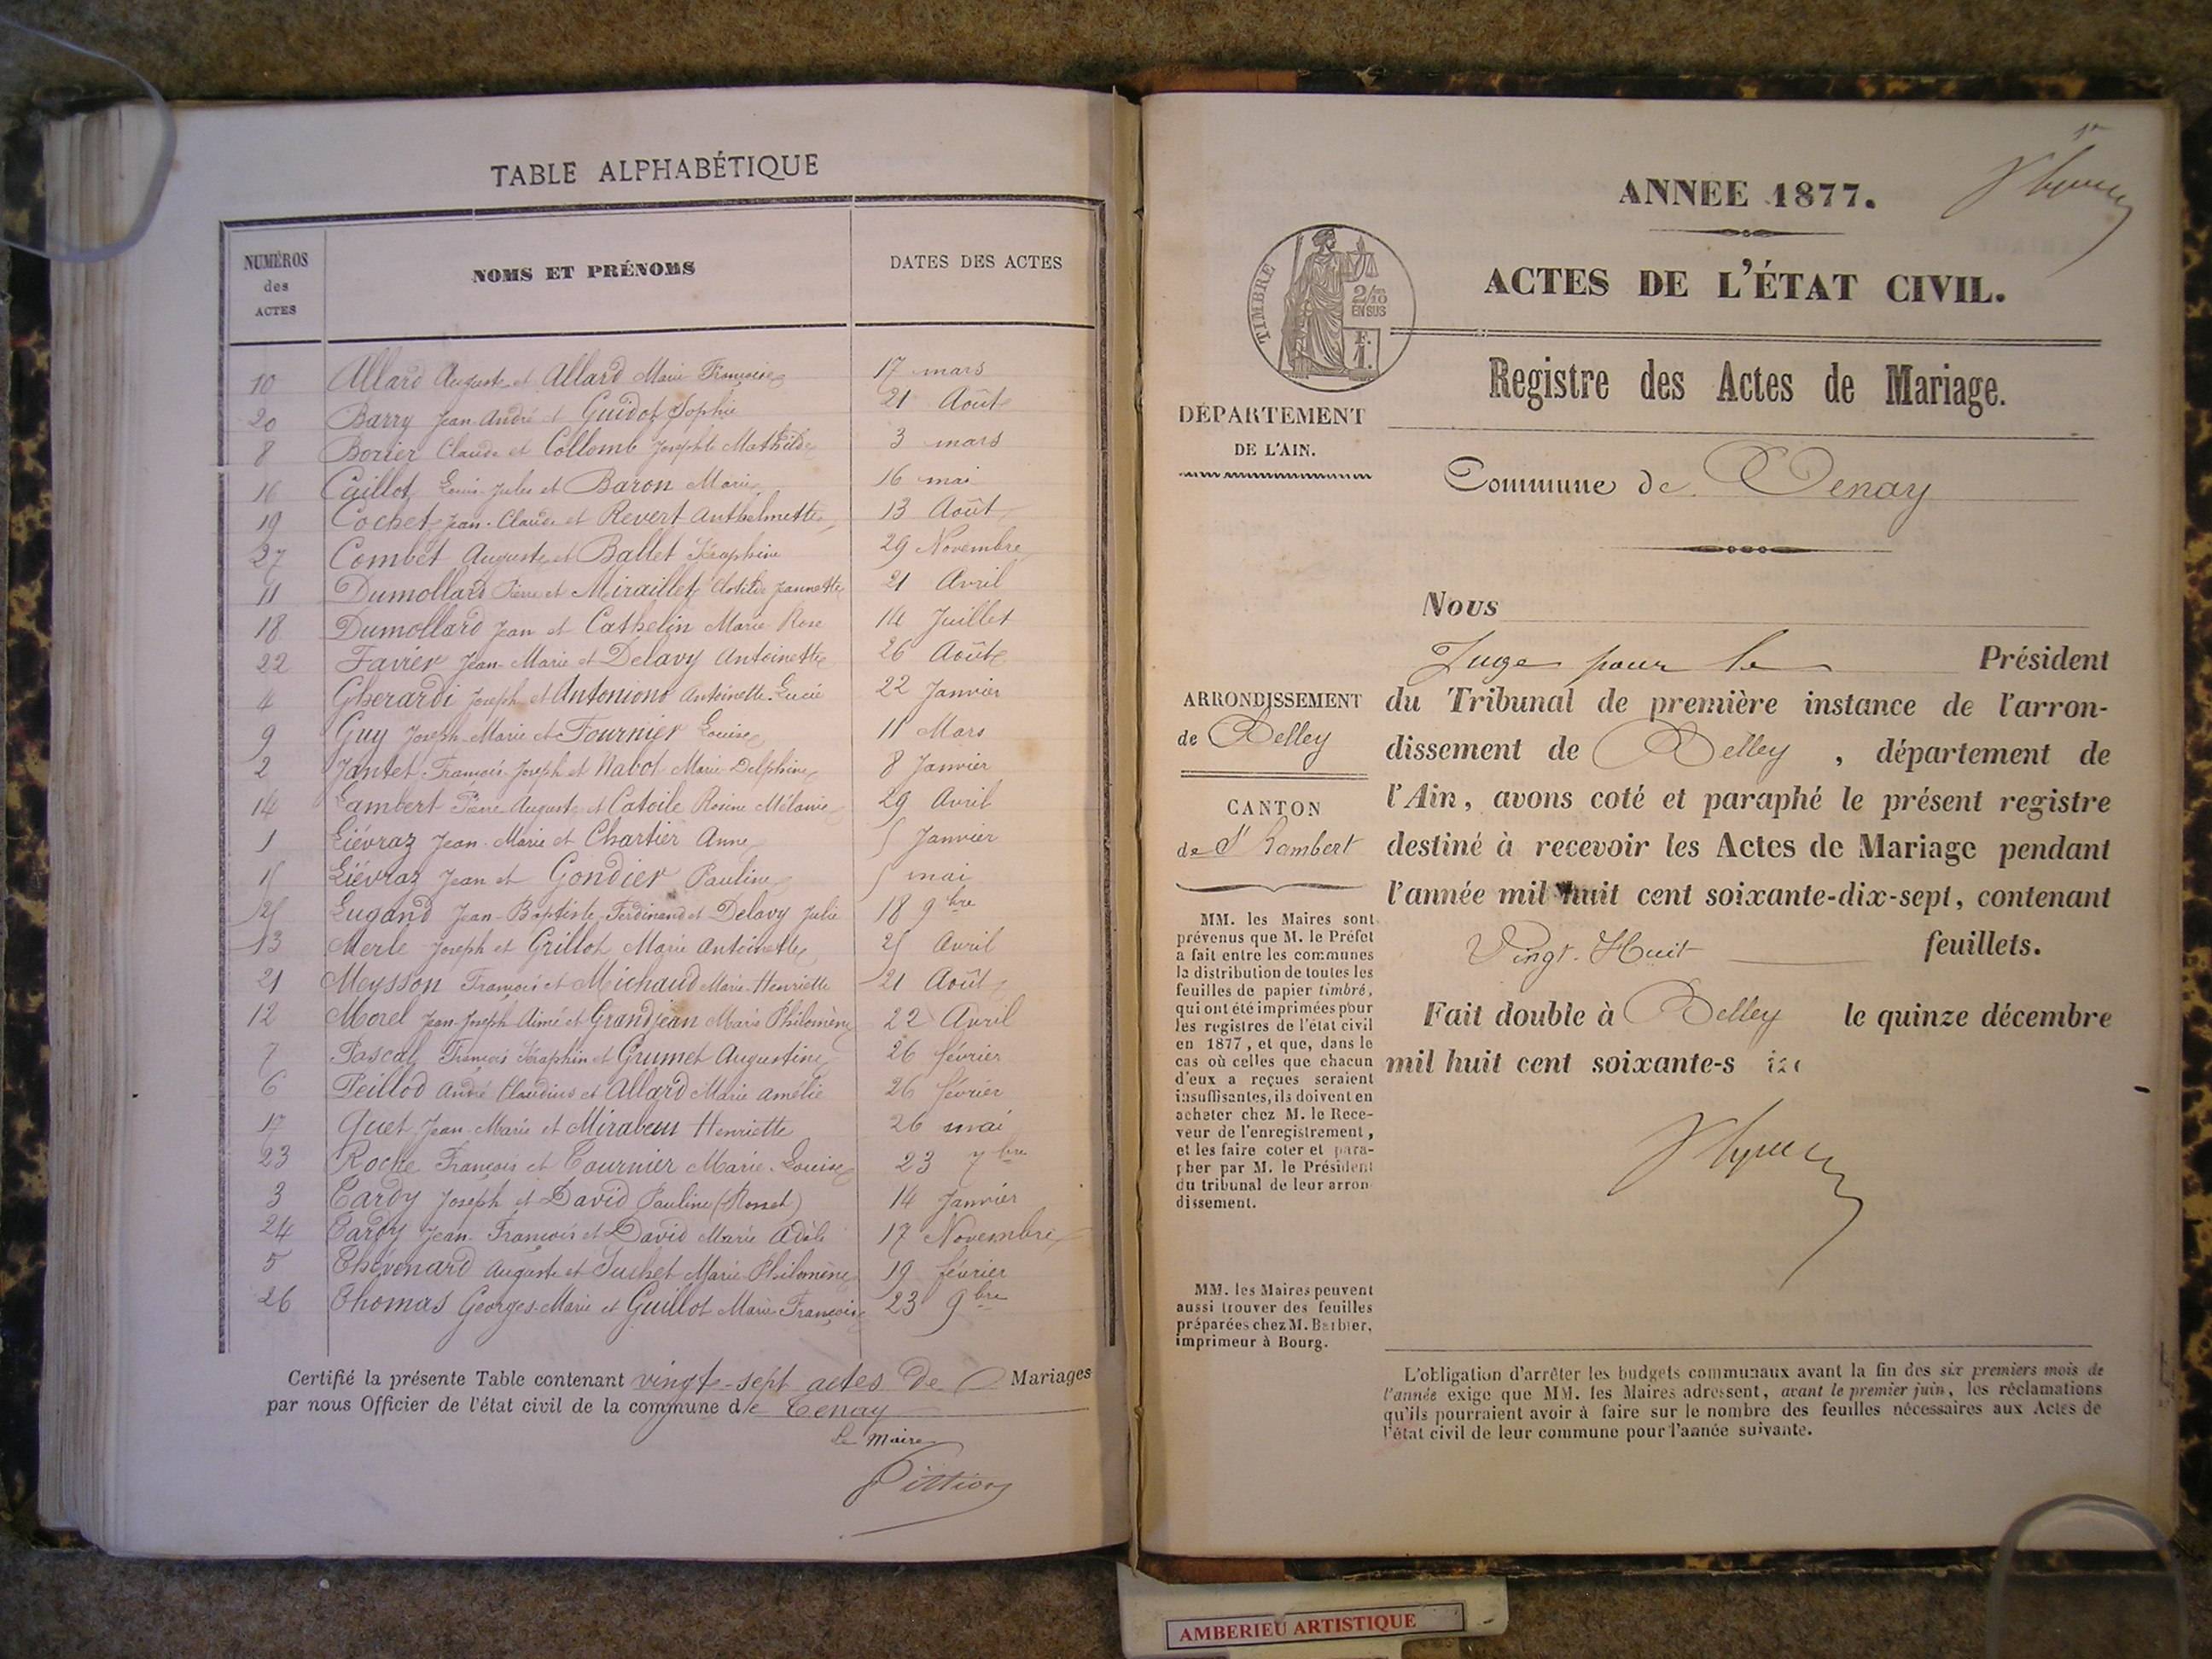 TABLE ALPHABÉTIQUE
NUMÉROS des ACTES NOMS ET PRÉNOMS DATES DES ACTES
10 Allard Auguste et Allard Marie Françoise 17 mars
20 Barry Jean André et Guidot Sophie 21 Août
8 Borier Claude et Collomb Josephte Mathilde 3 mars
16 Caillot Louis-Jules et Baron Marie 16 mai
19 Cochet Jean-Claude et Revert Anthelmette 13 Août
27 Combet Auguste et Ballet Séraphine 29 Novembre
11 Dumollard Pierre et Miraillet Clotilde Jeannette 21 Avril
18 Dumollard Jean et Cathelin Marie Rose 14 Juillet
22 Favier Jean-Marie et Delavy Antoinette 26 Août
4 Gherardi Joseph et Antoniono Antoinette-Lucie 22 Janvier
9 Guy Joseph-Marie et Fournier Louise 11 Mars
2 Jantet François-Joseph et Nabot Marie-Delphine 8 Janvier
14 Lambert Pierre Auguste et Catoile Rosine Mélanie 29 Avril
1 Liévraz Jean-Marie et Chartier Anne 5 Janvier
15 Liévraz Jean et Gondier Pauline 5 mai
25 Lugand Jean-Baptiste Ferdinand et Delavy Julie 18 9bre
13 Merle Joseph et Grillot Marie Antoinette 25 Avril
21 Meysson François et Michaud Marie-Henriette 21 Août
12 Morel Jean-Joseph Aimé et Grandjean Marie Philomène 22 Avril
7 Pascal François Séraphin et Grumet Augustine 26 février
6 Peillod André Claudius et Allard Marie Amélie 26 février
17 Quet Jean-Marie et Mirabeau Henriette 26 mai
23 Roche François et Tournier Marie-Louise 23 7bre
3 Tardy Joseph et David Pauline (Rosset) 14 Janvier
24 Tardy Jean-François et David Marie Adèle 17 Novembre
5 Thévenard Auguste et Suchet Marie-Philomène 19 février
26 Thomas Georges-Marie et Guillot Marie Françoise 23 9bre
Certifié la présente Table contenant vingt-sept actes de Mariages
par nous Officier de l'état civil de la commune de Tenay
Le Maire
Pittion
ANNEE 1877.
TIMBRE
2/10 EN SUS
F. 1.
ACTES DE L'ÉTAT CIVIL.
Registre des Actes de Mariage.
DÉPARTEMENT
DE L'AIN.
Commune de Tenay
Nous
Juge pour le Président
du Tribunal de première instance de l'arron-
dissement de Belley, département de
l'Ain, avons coté et paraphé le présent registre
destiné à recevoir les Actes de Mariage pendant
l'année mil huit cent soixante-dix-sept, contenant
Vingt-Huit feuillets.
Fait double à Belley le quinze décembre
mil huit cent soixante-s
ARRONDISSEMENT
de Belley
CANTON
de St Rambert
MM. les Maires sont
prévenus que M. le Préfet
a fait entre les communes
la distribution de toutes les
feuilles de papier timbré,
qui ont été imprimées pour
les registres de l'état civil
en 1877, et que, dans le
cas où celles que chacun
d'eux a reçues seraient
insuffisantes, ils doivent en
acheter chez M. le Rece-
veur de l'enregistrement,
et les faire coter et para-
pher par M. le Président
du tribunal de leur arron-
dissement.
MM. les Maires peuvent
aussi trouver des feuilles
préparées chez M. Barbier,
imprimeur à Bourg.
L'obligation d'arrêter les budgets communaux avant la fin des six premiers mois de
l'année exige que MM. les Maires adressent, avant le premier juin, les réclamations
qu'ils pourraient avoir à faire sur le nombre des feuilles nécessaires aux Actes de
l'état civil de leur commune pour l'année suivante.
AMBERIEU ARTISTIQUE